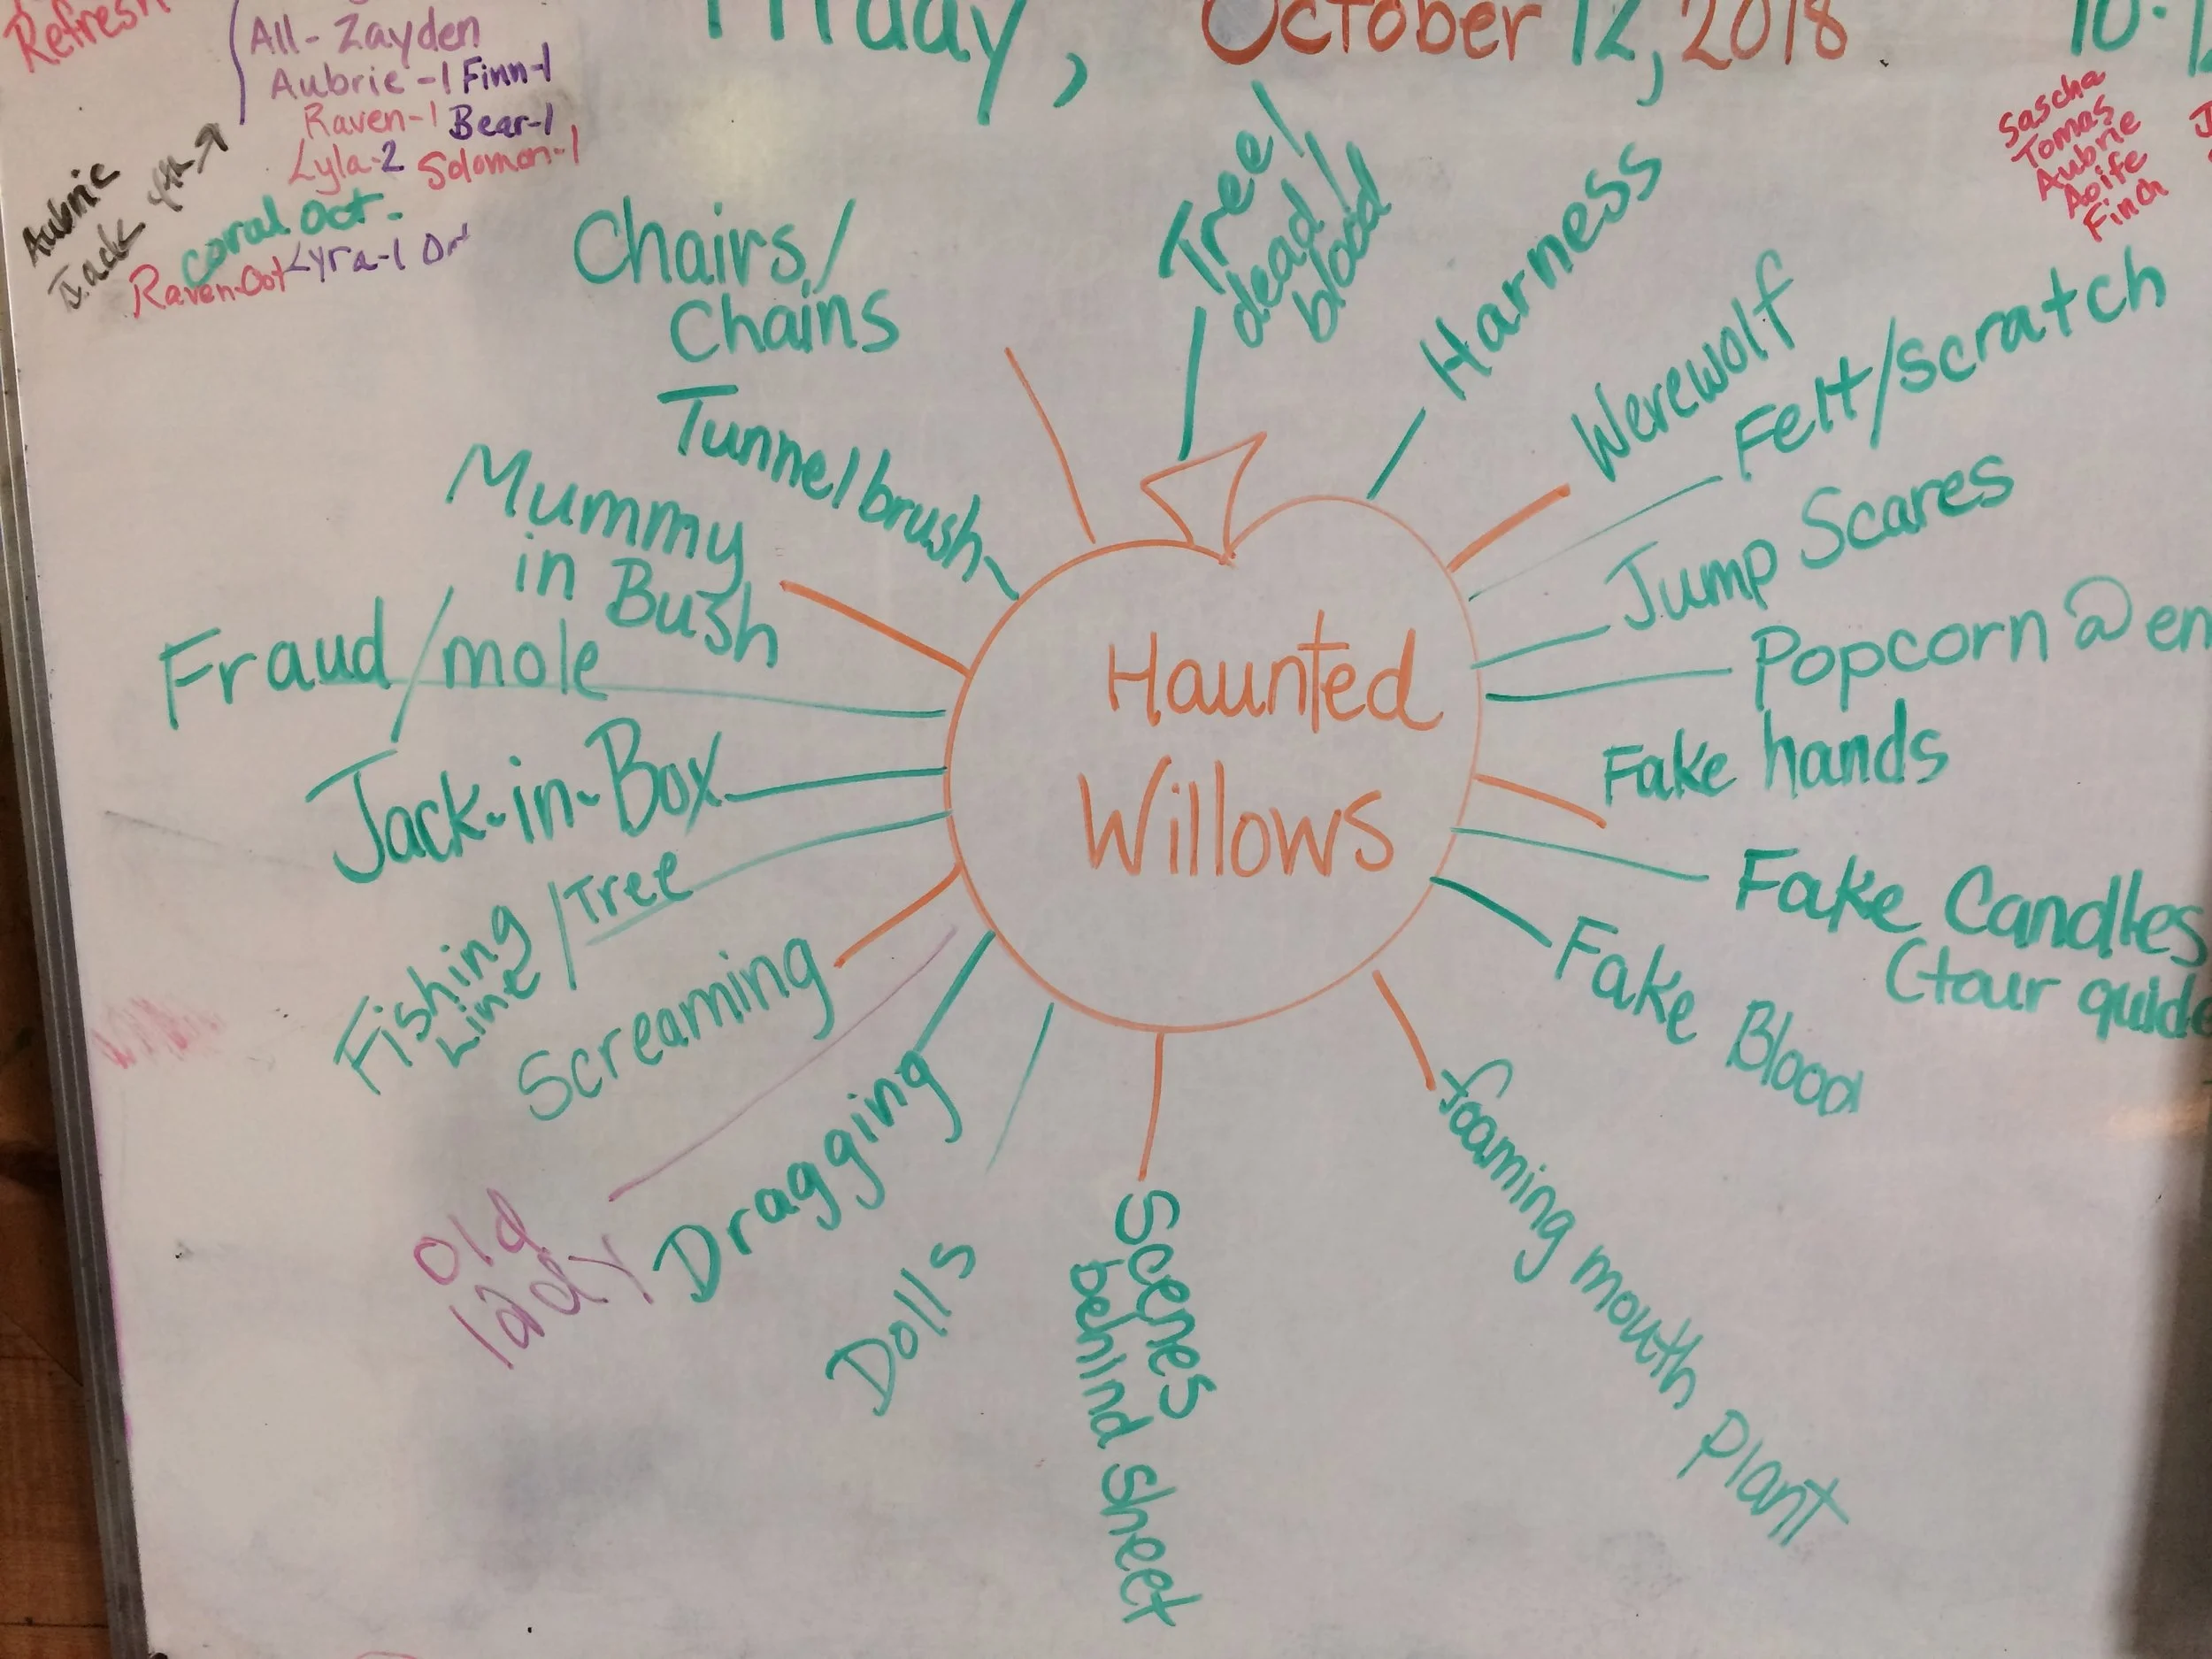 Refresh
All- Zayden
Aubrie -1 Finn-1
Raven-1 Bear-1
Lyla-2 Solomon-1
Aubrie
Jack
coral oct.
Raven-Oct Lyra-1
Friday, October 12, 2018
10-1
Sascha
Tomas
Aubrie
Aoife
Finch
Haunted
Willows
Chairs/
Chains
Tree/
dead/
blood
Harness
Werewolf
Felt/scratch
Jump Scares
Popcorn @ en
Fake hands
Fake Candles
(tour guide
Fake Blood
foaming mouth plant
Scenes
behind sheet
Dolls
Dragging
Old
lady
Screaming
Fishing
Line /Tree
Jack-in-Box
Fraud/mole
Mummy
in Bush
Tunnel brush